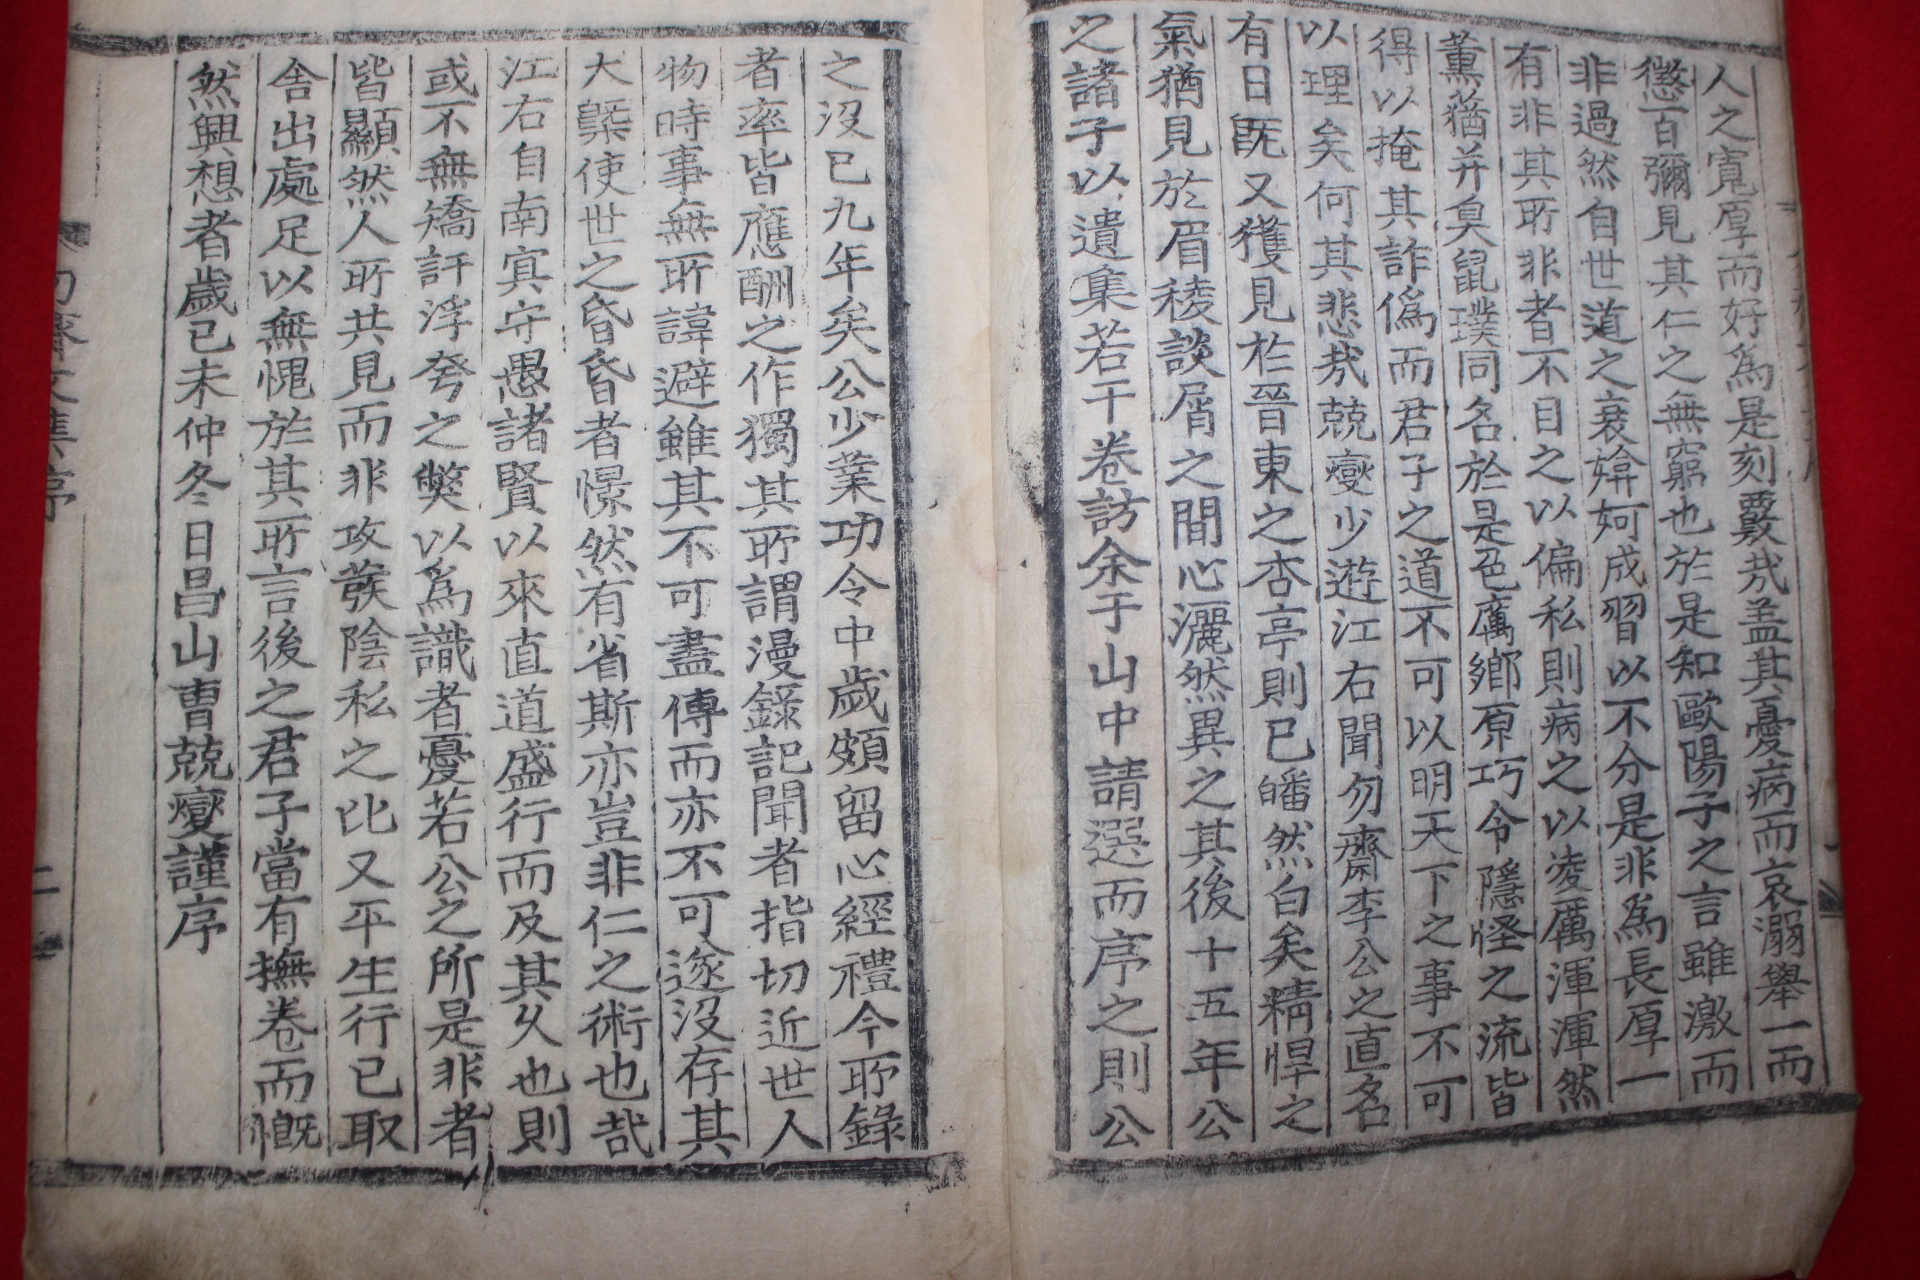 人之寬厚而好爲是刻覈㢤盖其憂病而哀溺擧一而
懲百彌見其仁之無窮也於是知歐陽子之言雖激而
非過然自世道之衰媕妸成習以不分是非爲長厚一
有非其所非者不目之以偏私則病之以凌厲渾渾然
薰蕕幷臭鼠璞同名於是色厲鄕原巧令隱怪之流皆
得以掩其詐僞而君子之道不可以明天下之事不可
以理矣何其悲㢤兢燮少遊江右聞勿齋李公之直名
有日旣又獲見於晉東之杏亭則已皤然白矣精悍之
氣猶見於眉稜談屑之間心灑然異之其後十五年公
之諸子以遺集若干卷訪余于山中請選而序之則公
之沒已九年矣公少業功令中歲頗留心經禮今所錄
者率皆應酬之作獨其所謂漫錄記聞者指切近世人
物時事無所諱避雖其不可盡傳而亦不可遂沒存其
大槩使世之昏昏者憬然有省斯亦豈非仁之術也哉
江右自南㝠守愚諸賢以來直道盛行而及其久也則
或不無矯訐浮夸之弊以爲識者憂若公之所是非者
皆顯然人所共見而非攻發陰私之比又平生行已取
舍出處足以無愧於其所言後之君子當有撫卷而慨
然興想者歲已未仲冬日昌山曺兢燮謹序
勿齋文集序
二